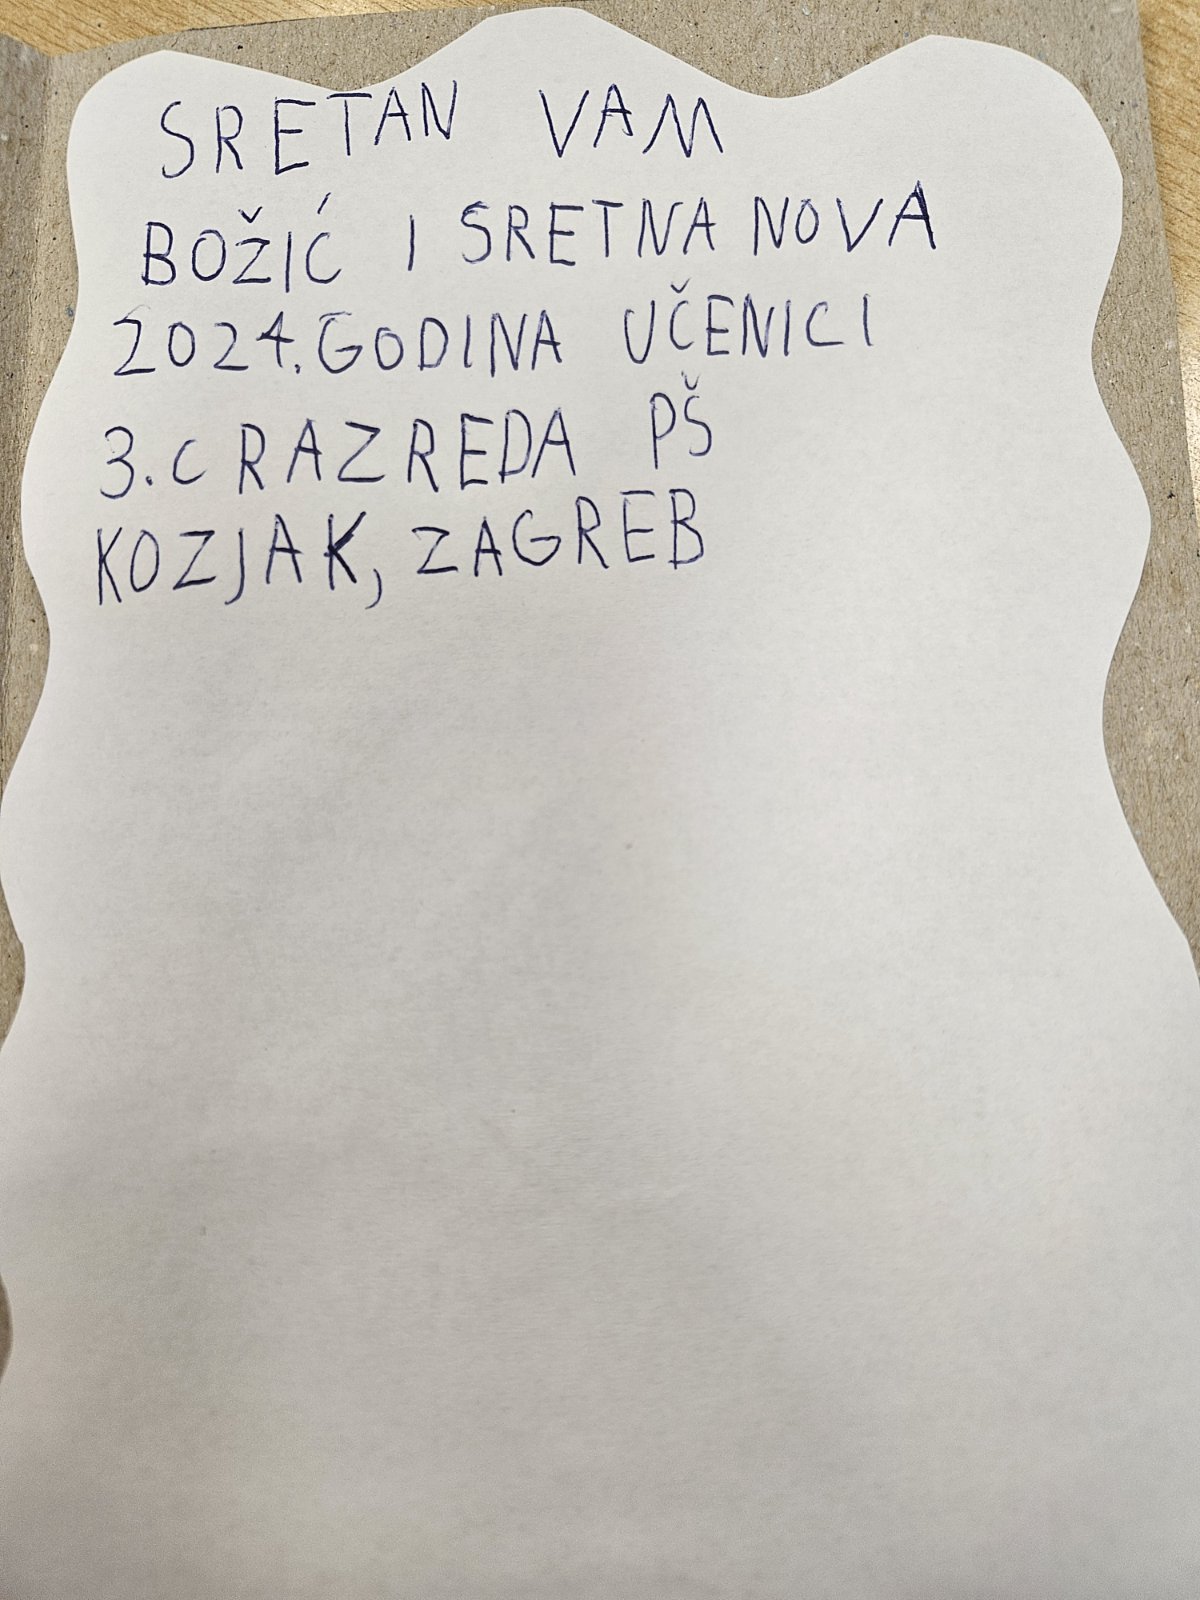 SRETAN VAM
BOŽIĆ I SRETNA NOVA
2024. GODINA UČENICI
3.C RAZREDA PŠ
KOZJAK, ZAGREB